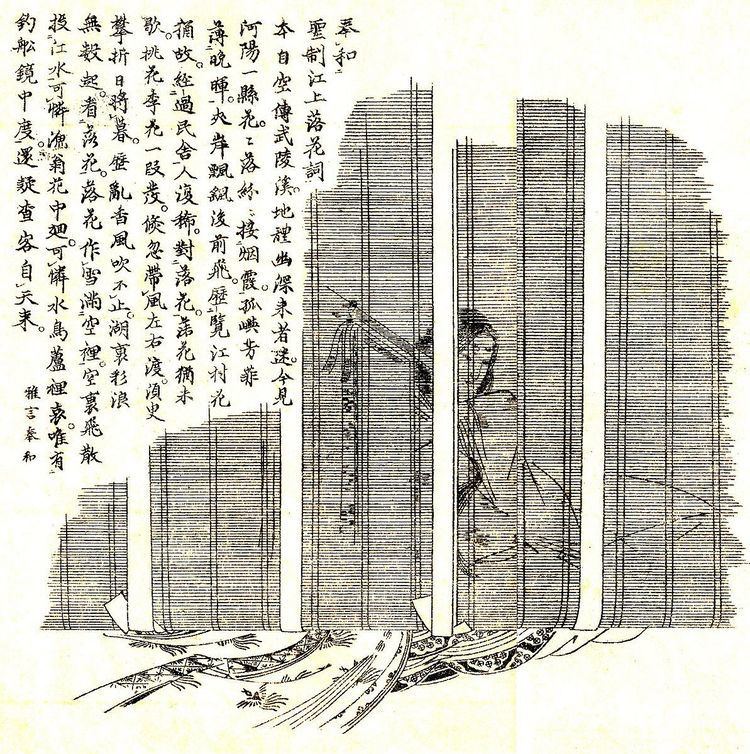 奉和
聖制江上落花詞
本自空傳武陵溪。地裡幽深来者迷。今見
河陽一縣花。〻落紛〻接烟霞。孤嶼芳菲
薄晩暉。夾岸飄颻後前飛。歴覧江村花
猶故。経過民舎人復稀。對落花。落花猶未
歇。桃花李花一段發。倐忽帯風左右渡。湏臾
攀折日将暮。歴亂香風吹不止。湖裏彩浪
無数起。看落花。落花作雪満空裡。空裏飛散
投江水可憐漁翁花中廻。可憐水鳥蘆裡哀。唯有
釣舩鏡中度。還疑査客自天来。
雅言奉和